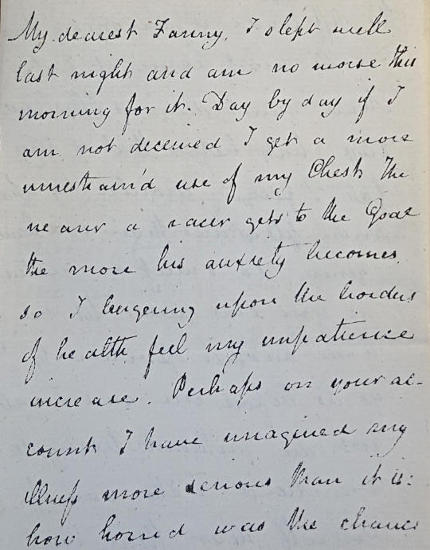 My dearest Fanny, I slept well
last night and am no worse this
morning for it. Day by day if I
am not deceived I get a more
unrestrain'd use of my Chest. The
nearer a racer gets to the Goal
the more his anxiety becomes,
so I lingering upon the borders
of health feel my impatience
increase. Perhaps on your ac-
count I have imagined my
illness more serious than it is:
how horrid was the chance